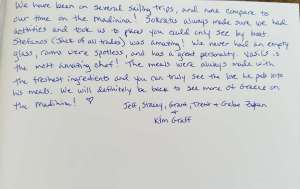 We have been on several sailing trips, and none compare to
our time on the Madinina! Sokratis always made sure we had
activities and took us to places you could only see by boat.
Stefanos (Jack of all trades) was amazing! We never had an empty
glass, rooms were spotless, and has a great personality. Vasilis is
the most amazing chef! The meals were always made with
the freshest ingredients and you can truly see the love he puts into
his meals. We will definitely be back to see more of Greece on
the Madinina! ♡
Jeff, Stacey, Grant, Trent +
+
Kim Graff